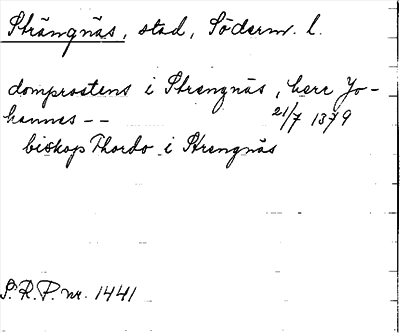 Strängnäs, stad, Söderm. l.
domprostens i Strengnäs, herr Jo-
hannes -- 21/7 1379
biskop Thordo i Strengnäs
S.R.P. nr. 1441